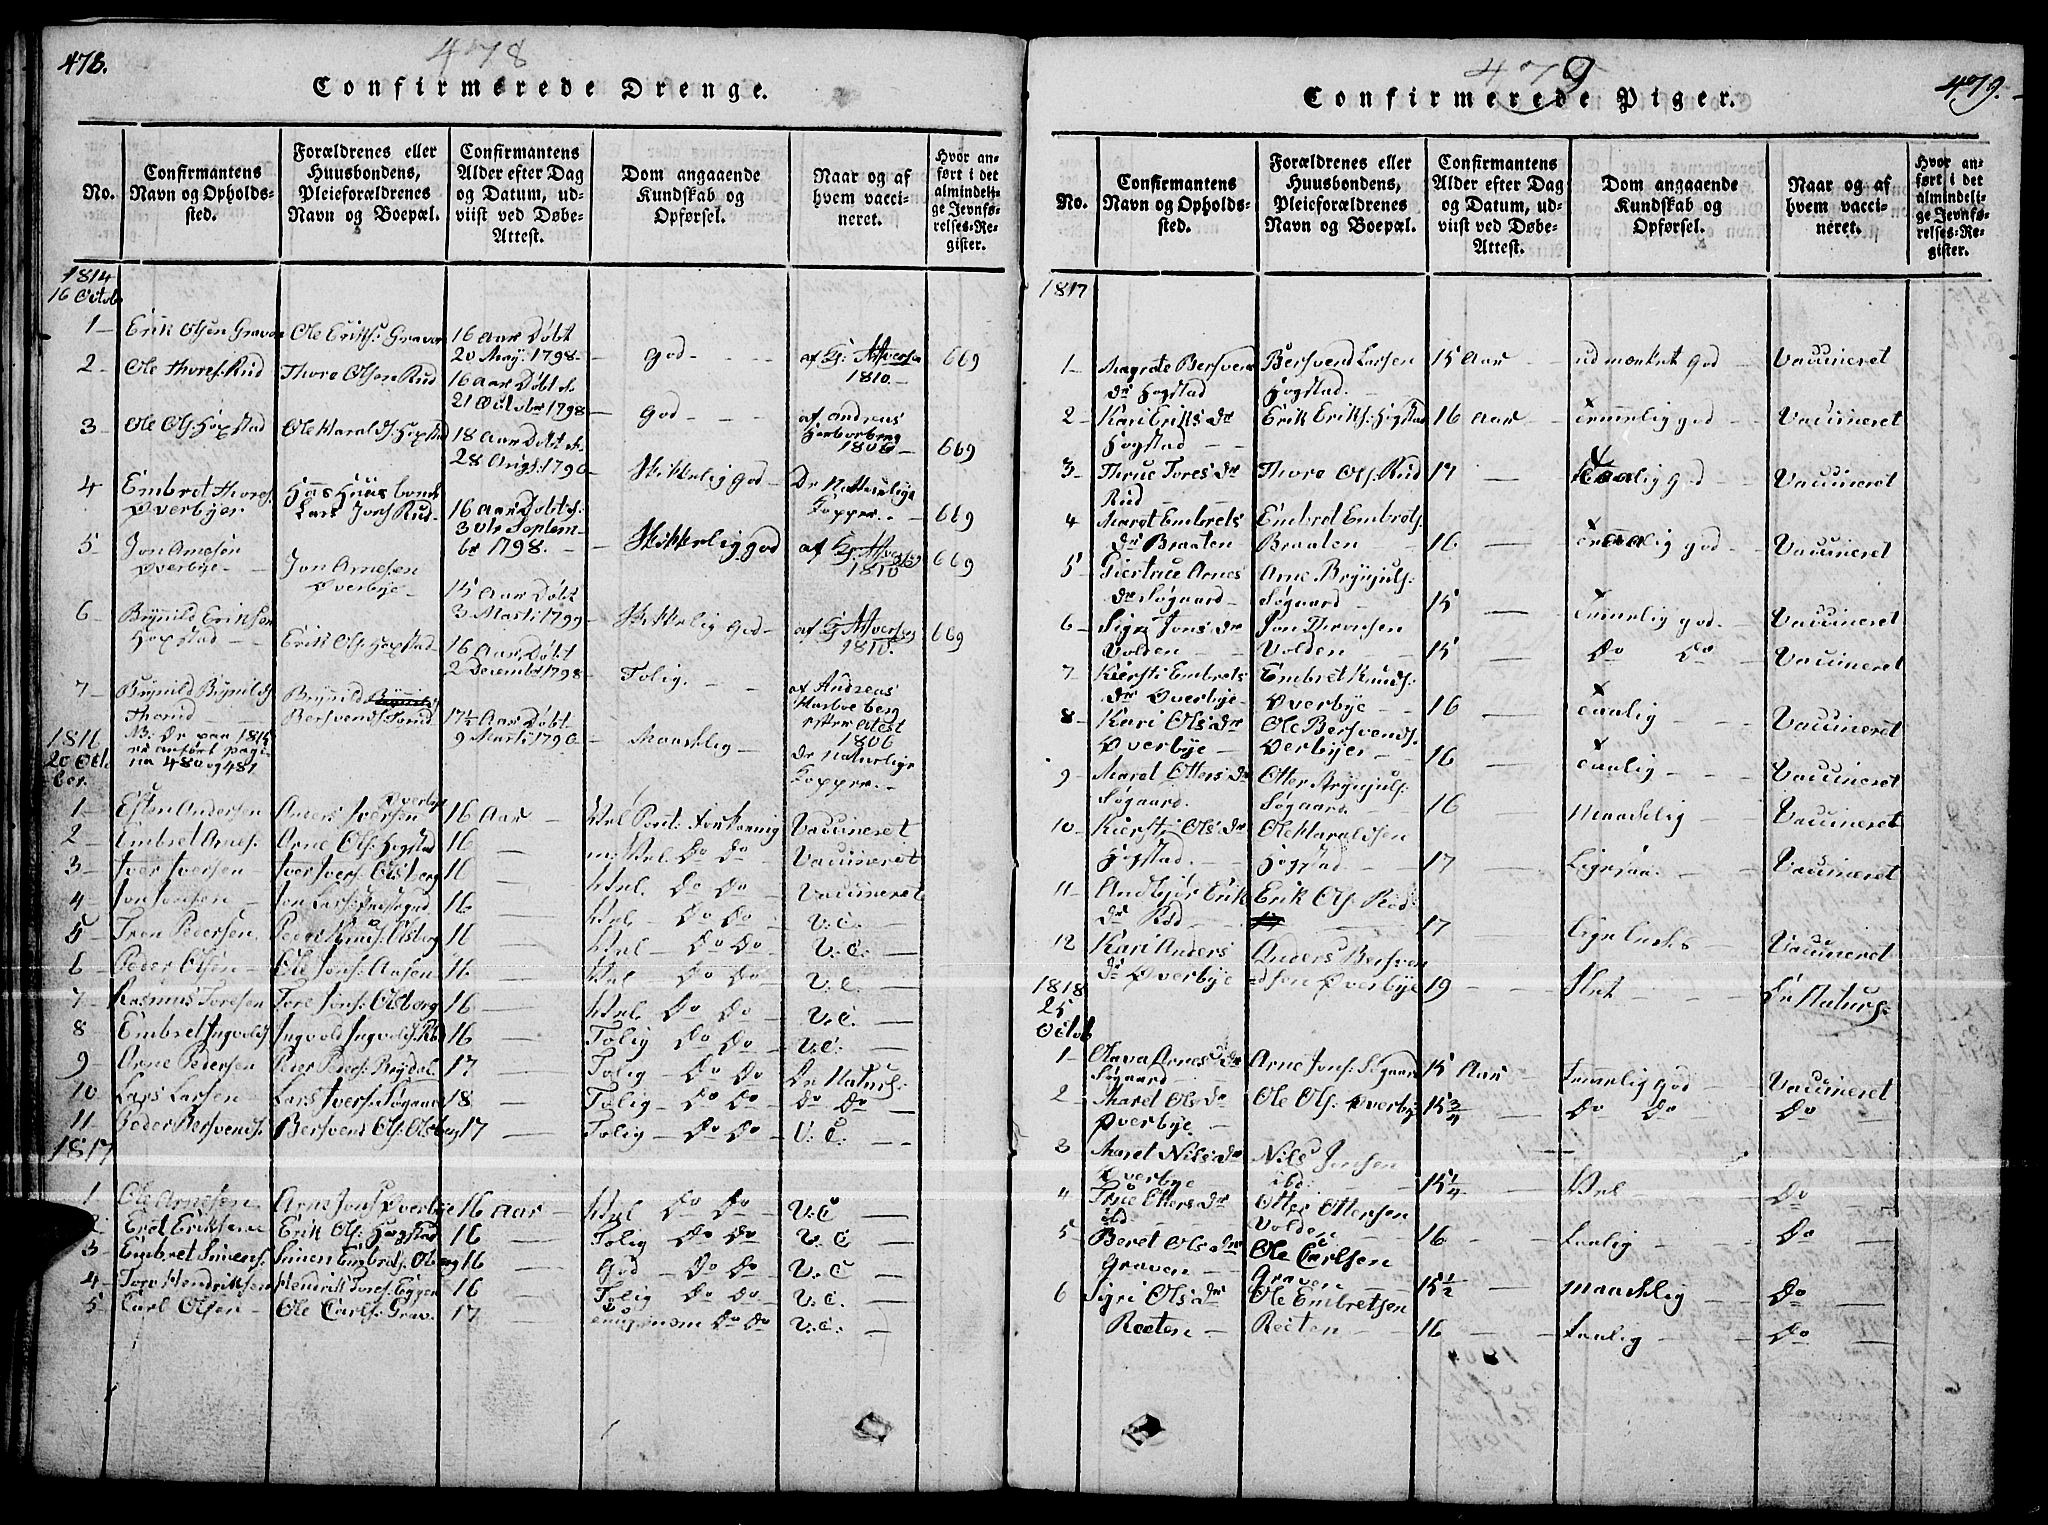 478.
478
Confirmerede Drenge.
No.
Confirmantens Navn og Opholdssted.
Forældrenes eller Huusbondens, Pleieforældrenes Navn og Boepæl.
Confirmantens Alder efter Dag og Datum, udviist ved Døbe-Attest.
Dom angaaende Kundskab og Opførsel.
Naar og af hvem vaccineret.
Hvor anført i det almindelige Jevnførelses-Register.
1814
16 Octob
1 - Erik Olsen Graven Ole Eriks: Graven 16 Aar Døbt 20 May. 1798 - God - - - af 1810. - 669
2 - Ole Thores: Rud Thore Olsen Rud 16 Aar Døbt 21 October 1798 - God - - - af Andreas 1806 - 669
3 - Ole Ols: Hogstad Ole Haralds: Hogstad 18 Aar Døbt 28 1796 - Skikkelig God - De Natturlige Kopper. - 669
4 Embret Thores: Øverbyer Hans Huusbond Lars Jons: Rud - 16 Aar Døbt 30te Septembr 1798. - Skikkelig god - af 1810 669
5 - Jon Arnesen Øverbye - Jon Arnesen Øverbye - 15 Aar Døbt 3 Marti 1799 - Skikkelig God - af 1810. 669
6 - Brynild Eriksen Hogstad - Erik Ols: Hogstad 16 Aar Døbt 2 December 1798 - Tolig. - - af Andreas efter Atest 1806
7 - Brynild Brynilds: Thorud Brynild Bersvends: Torud 17½ Aar Døbt 9 Marti 1796 - Maadelig - De Naturlige Kopper. -
1816
20 October.
NB: De paa 1815 er anført pagina 480 og 481
1 - Esten Andersen Anders Iversen Øverbye 16 Aar - Vel Vaccineret
2 - Embret Arnes: Arne Ols: Hogstad 16 - Vel Do Do - Vaccineret
3 - Iver Iversen - Iver Ivers: Olsberg 16 - Vel. Do Do Vaccineret
4 - Jon Jonsen - Jon Lars: 16 - Vel - Do Do V. C. -
5 - Tron Pedersen Peder Knuds: Olsberg 16 - Vel - Do Do - V. C. -
6 - Peder Olsen - Ole Jons: Aasen 16 - Vel - Do Do V. C. -
7 - Rasmus Toresen Tore Jons: Olsberg 16 - Vel. Do Do V. C. -
8 Embret Ingvolds: Ingvold Ingvolds: 16 - Tolig Do Do V. C. -
9 Arne Pedersen Peder Peders: Brydal 17 - Tolig - Do Do De Naturl:
10 Lars Larsen - Lars Ivers: Søgaard 18 - Tolig - Do Do - Do Do -
11 Peder Bersvends: Bersvend Ols: Olsberg 17 - Tolig - Do Do - V. C. - -
1817
1 Ole Arnesen Arne Jons: Øverbye 16 Aar - Vel Do Do V. C -
2 Eret Eriksen Erik Ols: Hogstad 16 - Tolig Do Do V. C -
3 - Embret Simens: Simen Embrets: Olsberg 16 - God - Do Do - V. C -
4 - Tore Hendriksen Hendrik Tores: Eggen 16 - Tolig Do Do - V. C. -
5 - Carl Olsen - Ole Carls: Grav. 17 - Do Do V. C. -
479
479.
Confirmerede Piger.
No.
Confirmantens Navn og Opholdssted.
Forældrenes eller Huusbondens, Pleieforældrenes Navn og Boepæl.
Confirmantens Alder efter Dag og Datum, udviist ved Døbe-Attest.
Dom angaaende Kundskab og Opførsel.
Naar og af hvem vaccineret.
Hvor anført i det almindelige Jevnførelses-Register.
1817
1 - Magrete Bersvends dr Hogstad Bersvend Larsen Hogstad. 15 Aar - udmærket god - Vaccineret
2 - Kari Eriks dr Hogstad - Erik Eriks: Hogstad 16 Aar - Temmelig god - Vaccineret
3 - Tores dr Rud Thore Ols: Rud 17 - god - Vaccineret
4 Marot Embrets dr Braaten Embret Embrets: Braaten - 16 - god - Vaccineret
5 - Giertrue Arnes dr Søgaard - Arne Brynjuls: Søgaard - 15 - Temmelig god. - Vaccineret
6 - Sigri Jons dr Volden - Jon Thronsen Volden - 15 - Do Do Vaccineret
7 - Kiersti Embrets dr Øverbye - Embret Knuds: Øverbye - 16 - Taalig - Vaccineret
8 - Kari Ols dr Øverbye - Ole Bersvends: Øerbyer - 16 - Taalig - - Vaccineret
9 - Maret Otters dr Søgaard. Otter Brynjuls: Søgaard. - 16 - Maadelig - Vaccineret
10 - Kiersti Ols dr Hogstad. - Ole Haraldsen Hogstad. - 17 - Ligesaa. - - Vaccineret
11 Erik dr Rød Erik Ols: Rød 17 - - Vaccineret
12 Kari Anders dr Øverbye Anders Bersvendsen Øverbye 19 - - Slet - - De Naturl:
1818
25 Octob
1 - Olava Arnes dr Søgaard - Arne Jons: Søgaard 15 Aar - Temmelig god - Vaccineret
2 - Maret Ols dr Øverbye - Ole Ols: Øverbye 15¾ - Do Do - Do
3 Maret Nils dr Øverbye Nils Jensen ibd: 15¼ - Vel - Do
4 Otters dr ibd Otter Ottersen Volden 16 - - Taalig - Do -
5 Beret Ols dr Graven - Ole Carlsen Graven - 15½ - Maadelig - Do -
6 Sigri Ols dr Reeten - Ole Embretsen Reeten - 16 - - Taalig - Do -